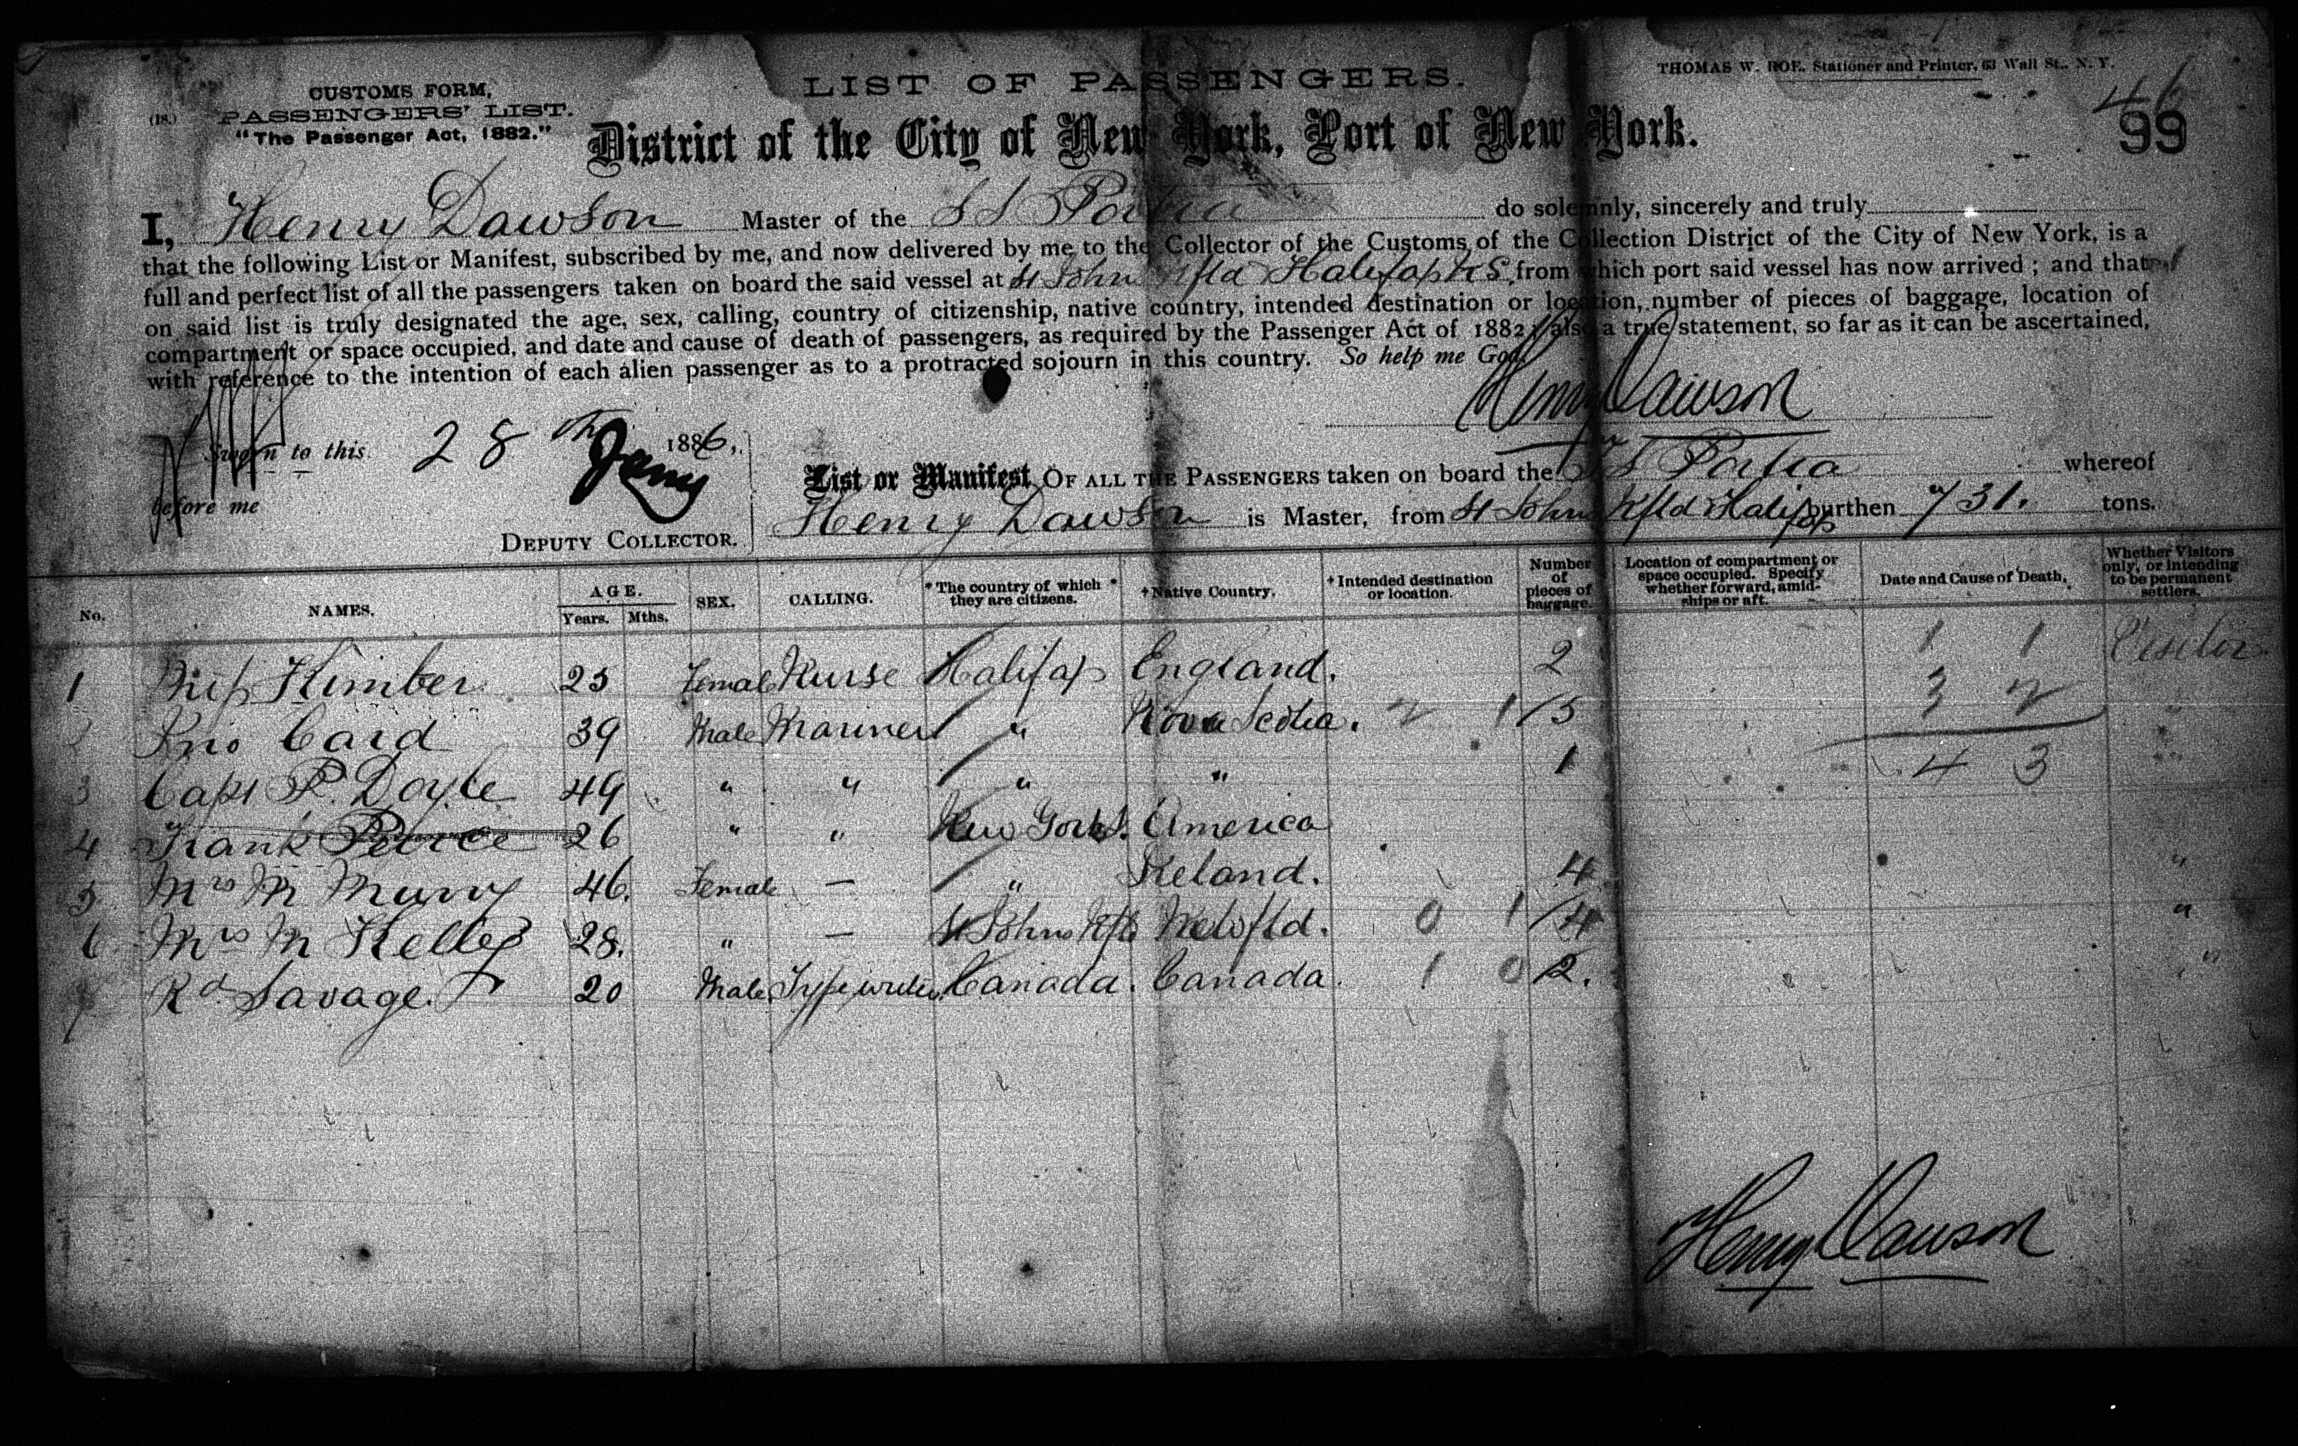 CUSTOMS FORM,
(18.) PASSENGERS' LIST.
"The Passenger Act, 1882."
LIST OF PASSENGERS.
THOMAS W. ROE, Stationer and Printer, 63 Wall St., N. Y.
46
99
District of the City of New York, Port of New York.
I, Henry Dawson Master of the SS Portia do solemnly, sincerely and truly
that the following List or Manifest, subscribed by me, and now delivered by me to the Collector of the Customs of the Collection District of the City of New York, is a
full and perfect list of all the passengers taken on board the said vessel at St Johns Nfld Halifax NS. from which port said vessel has now arrived; and that
on said list is truly designated the age, sex, calling, country of citizenship, native country, intended destination or location, number of pieces of baggage, location of
compartment or space occupied, and date and cause of death of passengers, as required by the Passenger Act of 1882; also a true statement, so far as it can be ascertained,
with reference to the intention of each alien passenger as to a protracted sojourn in this country. So help me God.
Henry Dawson
Sworn to this 28th Jany 1886,
before me
DEPUTY COLLECTOR.
List or Manifest OF ALL THE PASSENGERS taken on board the SS Portia whereof
Henry Dawson is Master, from St Johns Nfld Halifax burthen 731. tons.
No. NAMES. AGE. Years. Mths. SEX. CALLING. * The country of which they are citizens. * † Native Country. † Intended destination or location. Number of pieces of baggage. Location of compartment or space occupied. Specify whether forward, amidships or aft. Date and Cause of Death. Whether Visitors only, or intending to be permanent settlers.
1 Miss Kimber 25 Female Nurse Halifax England. 2 1 1 Visitor
2 Card 39 Male Mariner " Nova Scotia. 2 1 / 5 3 2 "
3 Capt P. Doyle 49 " " " " 1 4 3 "
4 Frank Peirce 26 " " New York America
5 Mrs M Murry 46. Female — " Ireland. 4 "
6 Mrs M Kelley 28. " — St Johns Nfld Newfld. 0 1 / 4 "
7 Rd Savage. 20 Male Typewriter Canada. Canada. 1 0 / 2. "
Henry Dawson